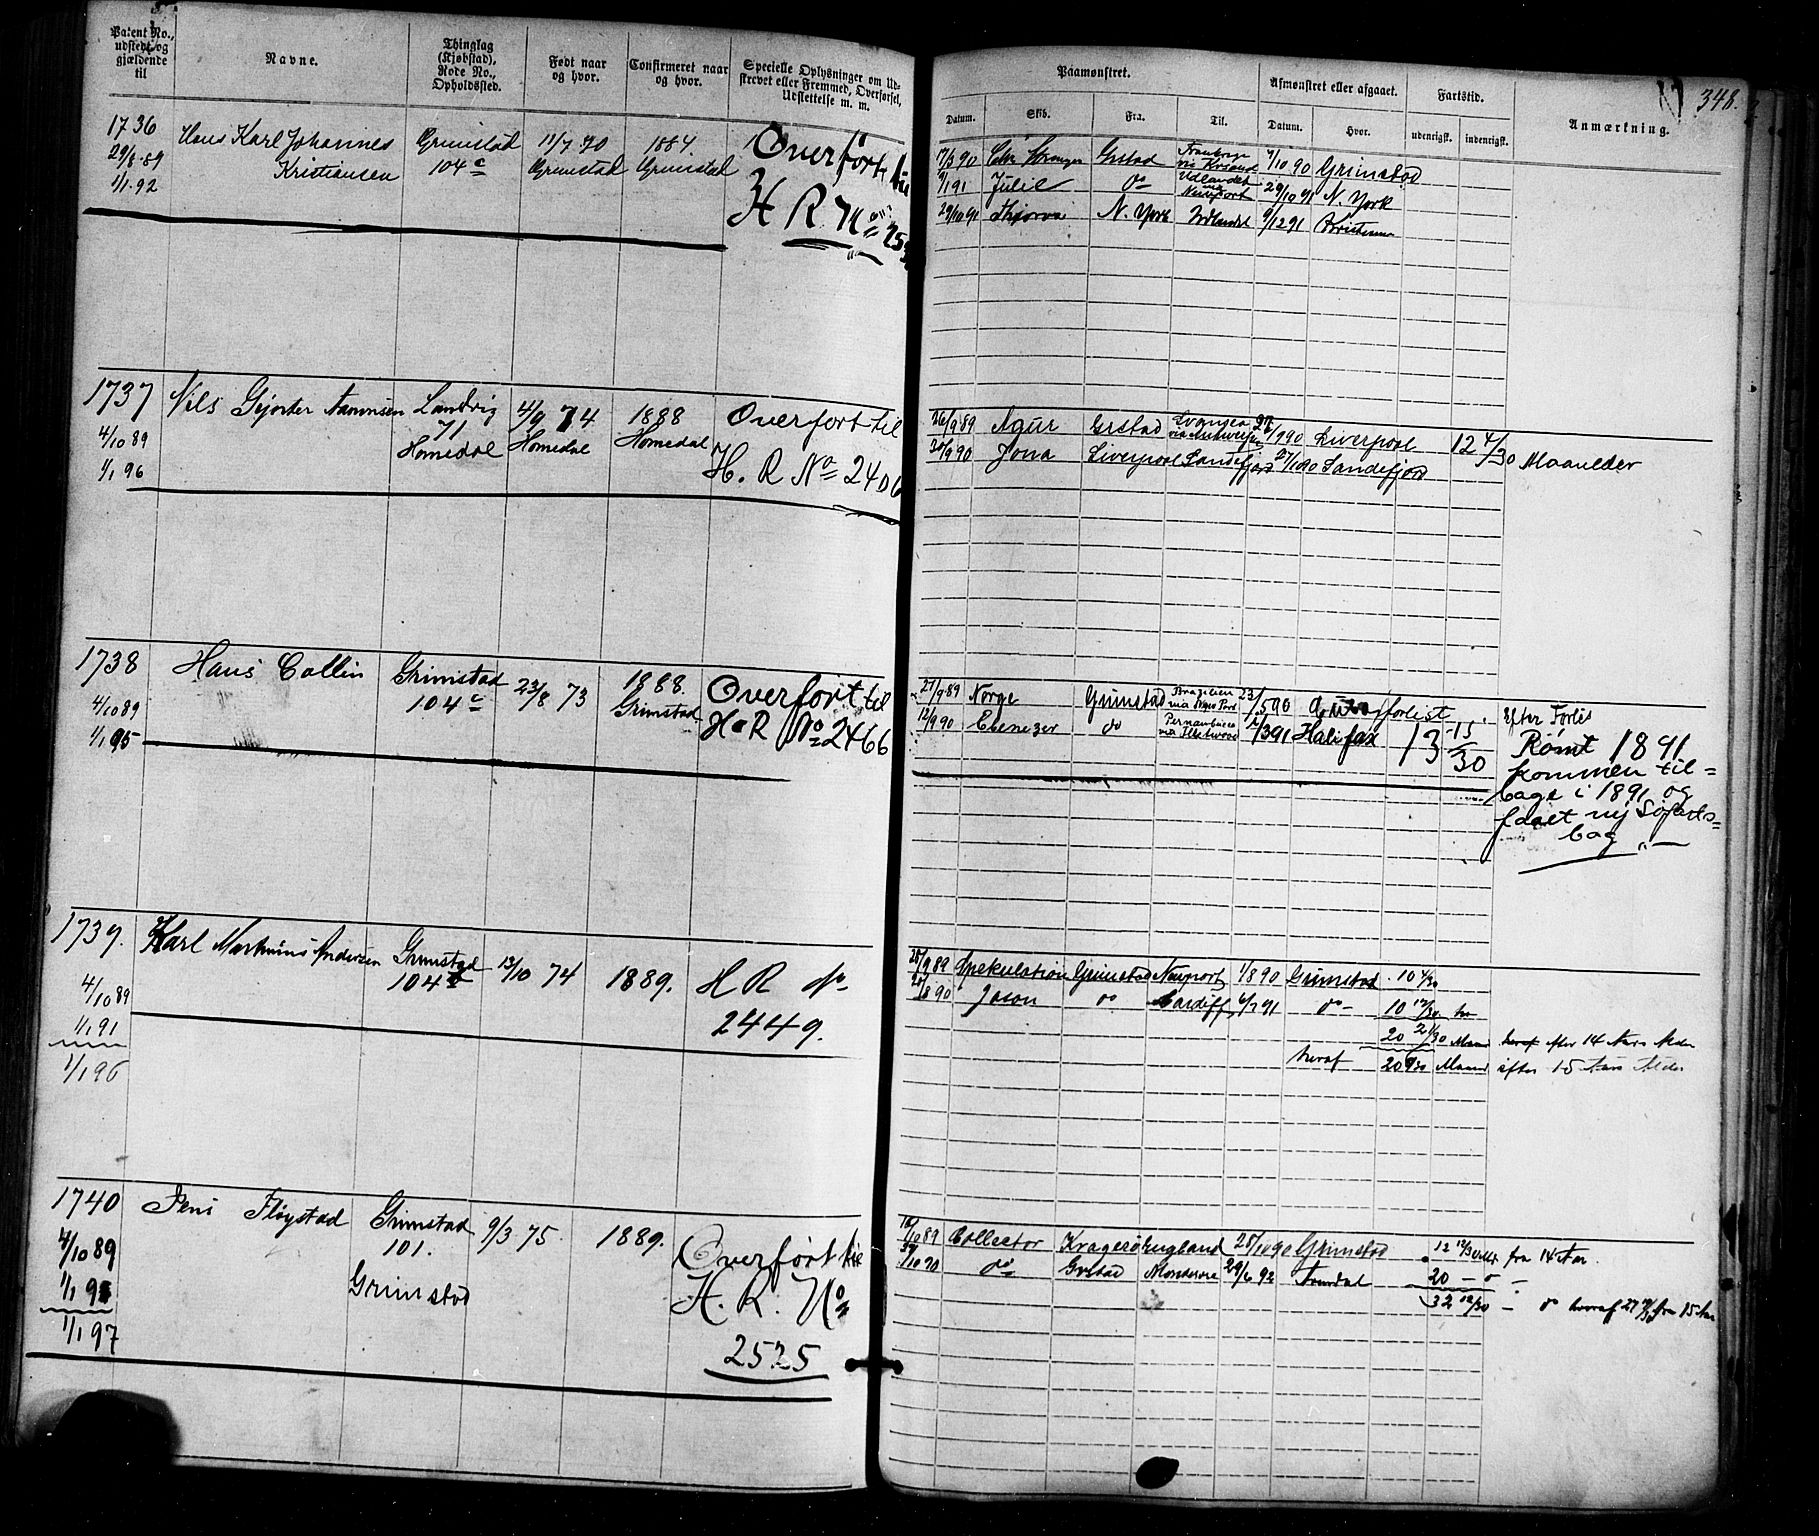 348.
Patent No., udstedt og gjældende til
Navne.
Thinglag (Kjøbstad), Rode No., Opholdssted.
Født naar og hvor.
Confirmeret naar og hvor.
Specielle Oplysninger om Udskrevet eller Fremmed, Overførsel, Udslettelse m. m.
Paamønstret.
Afmønstret eller afgaaet.
Fartstid.
Anmærkning.
Datum. Skib. Fra. Til. Datum. Hvor. udenrigsk. indenrigsk.
1736 Hans Karl Johannes Grimstad 11/7 70 1884 Overført til
29/8 89 Kristiansen 104 c Grimstad Grimstad
1/1 92 H R No
17/3 90 Grstad via Krsand 7/10 90 Grimstad
9/1 91 Julie do Udlandet 29/10 91 N. York
29/10 91 N. York Udlandet 9/12 91
1737 Nils Landvig 4/9 74 1888 Overført til
4/10 89 71 Homedal Homedal
1/1 96 Homedal H. R No 2400
26/9 89 Agur Grstad 90 Liverpool 12 4/30 Maaneder
90 Jona Liverpool Sandefjord Sandefjord
1738 Hans Collin Grimstad 23/8 73 1888. Overført til
4/10 89 104 c Grimstad
1/1 95 H R No 2466
27/9 89 Norge Grimstad Brasilien 23/5 90 forlist Efter Forlis
12/9 90 Ebenezer do Pernambuco via Fleetwood 1/3 91 Halifax 13 15/30
Rømt 1891
kommen til=
bage i 1891 og
faaet ny Søfarts=
bog
1739. Karl Markinius Andersen Grimstad 13/10 74 1889. H R No
4/10 89 104 2449.
1/1 91
1/1 96
89 Spekulation Grimstad Newport 1/8 90 Grimstad 10
90 Jason do Cardiff 91 do 10 12/30
20 21/30 Maand heraf efter 14 Aars Alder
heraf 20 Maand efter 15 Aars Alder
1740 Jens Fløystad Grimstad 9/3 75. 1889. Overført til
4/10 89 101.
1/1 95 Grimstad H. R. No
1/1 97 2525
10/10 89 Collector Kragerø England 28/10 90 Grimstad 12 12/30 fra 14 Aar
90 do Grstad 29/6 92 Arendal 20 — o —
32 12/30 — do heraf 27 fra 15 Aar